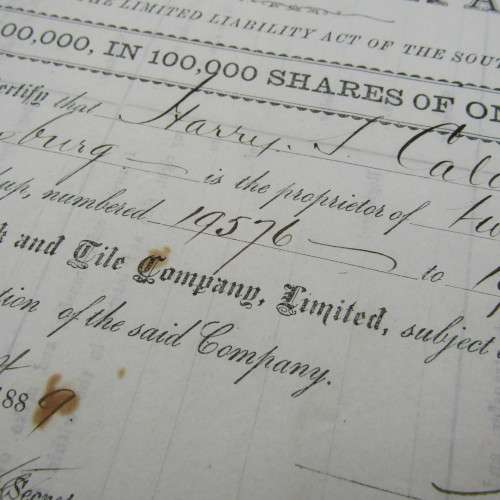 THE LIMITED LIABILITY ACT OF THE SOUT
00,000, IN 100,000 SHARES OF ON
ertify that Harry. S. Cal
burg is the proprietor of
up, numbered 19576 to 19
k and Tile Company, Limited, subject
tion of the said Company.
1889.